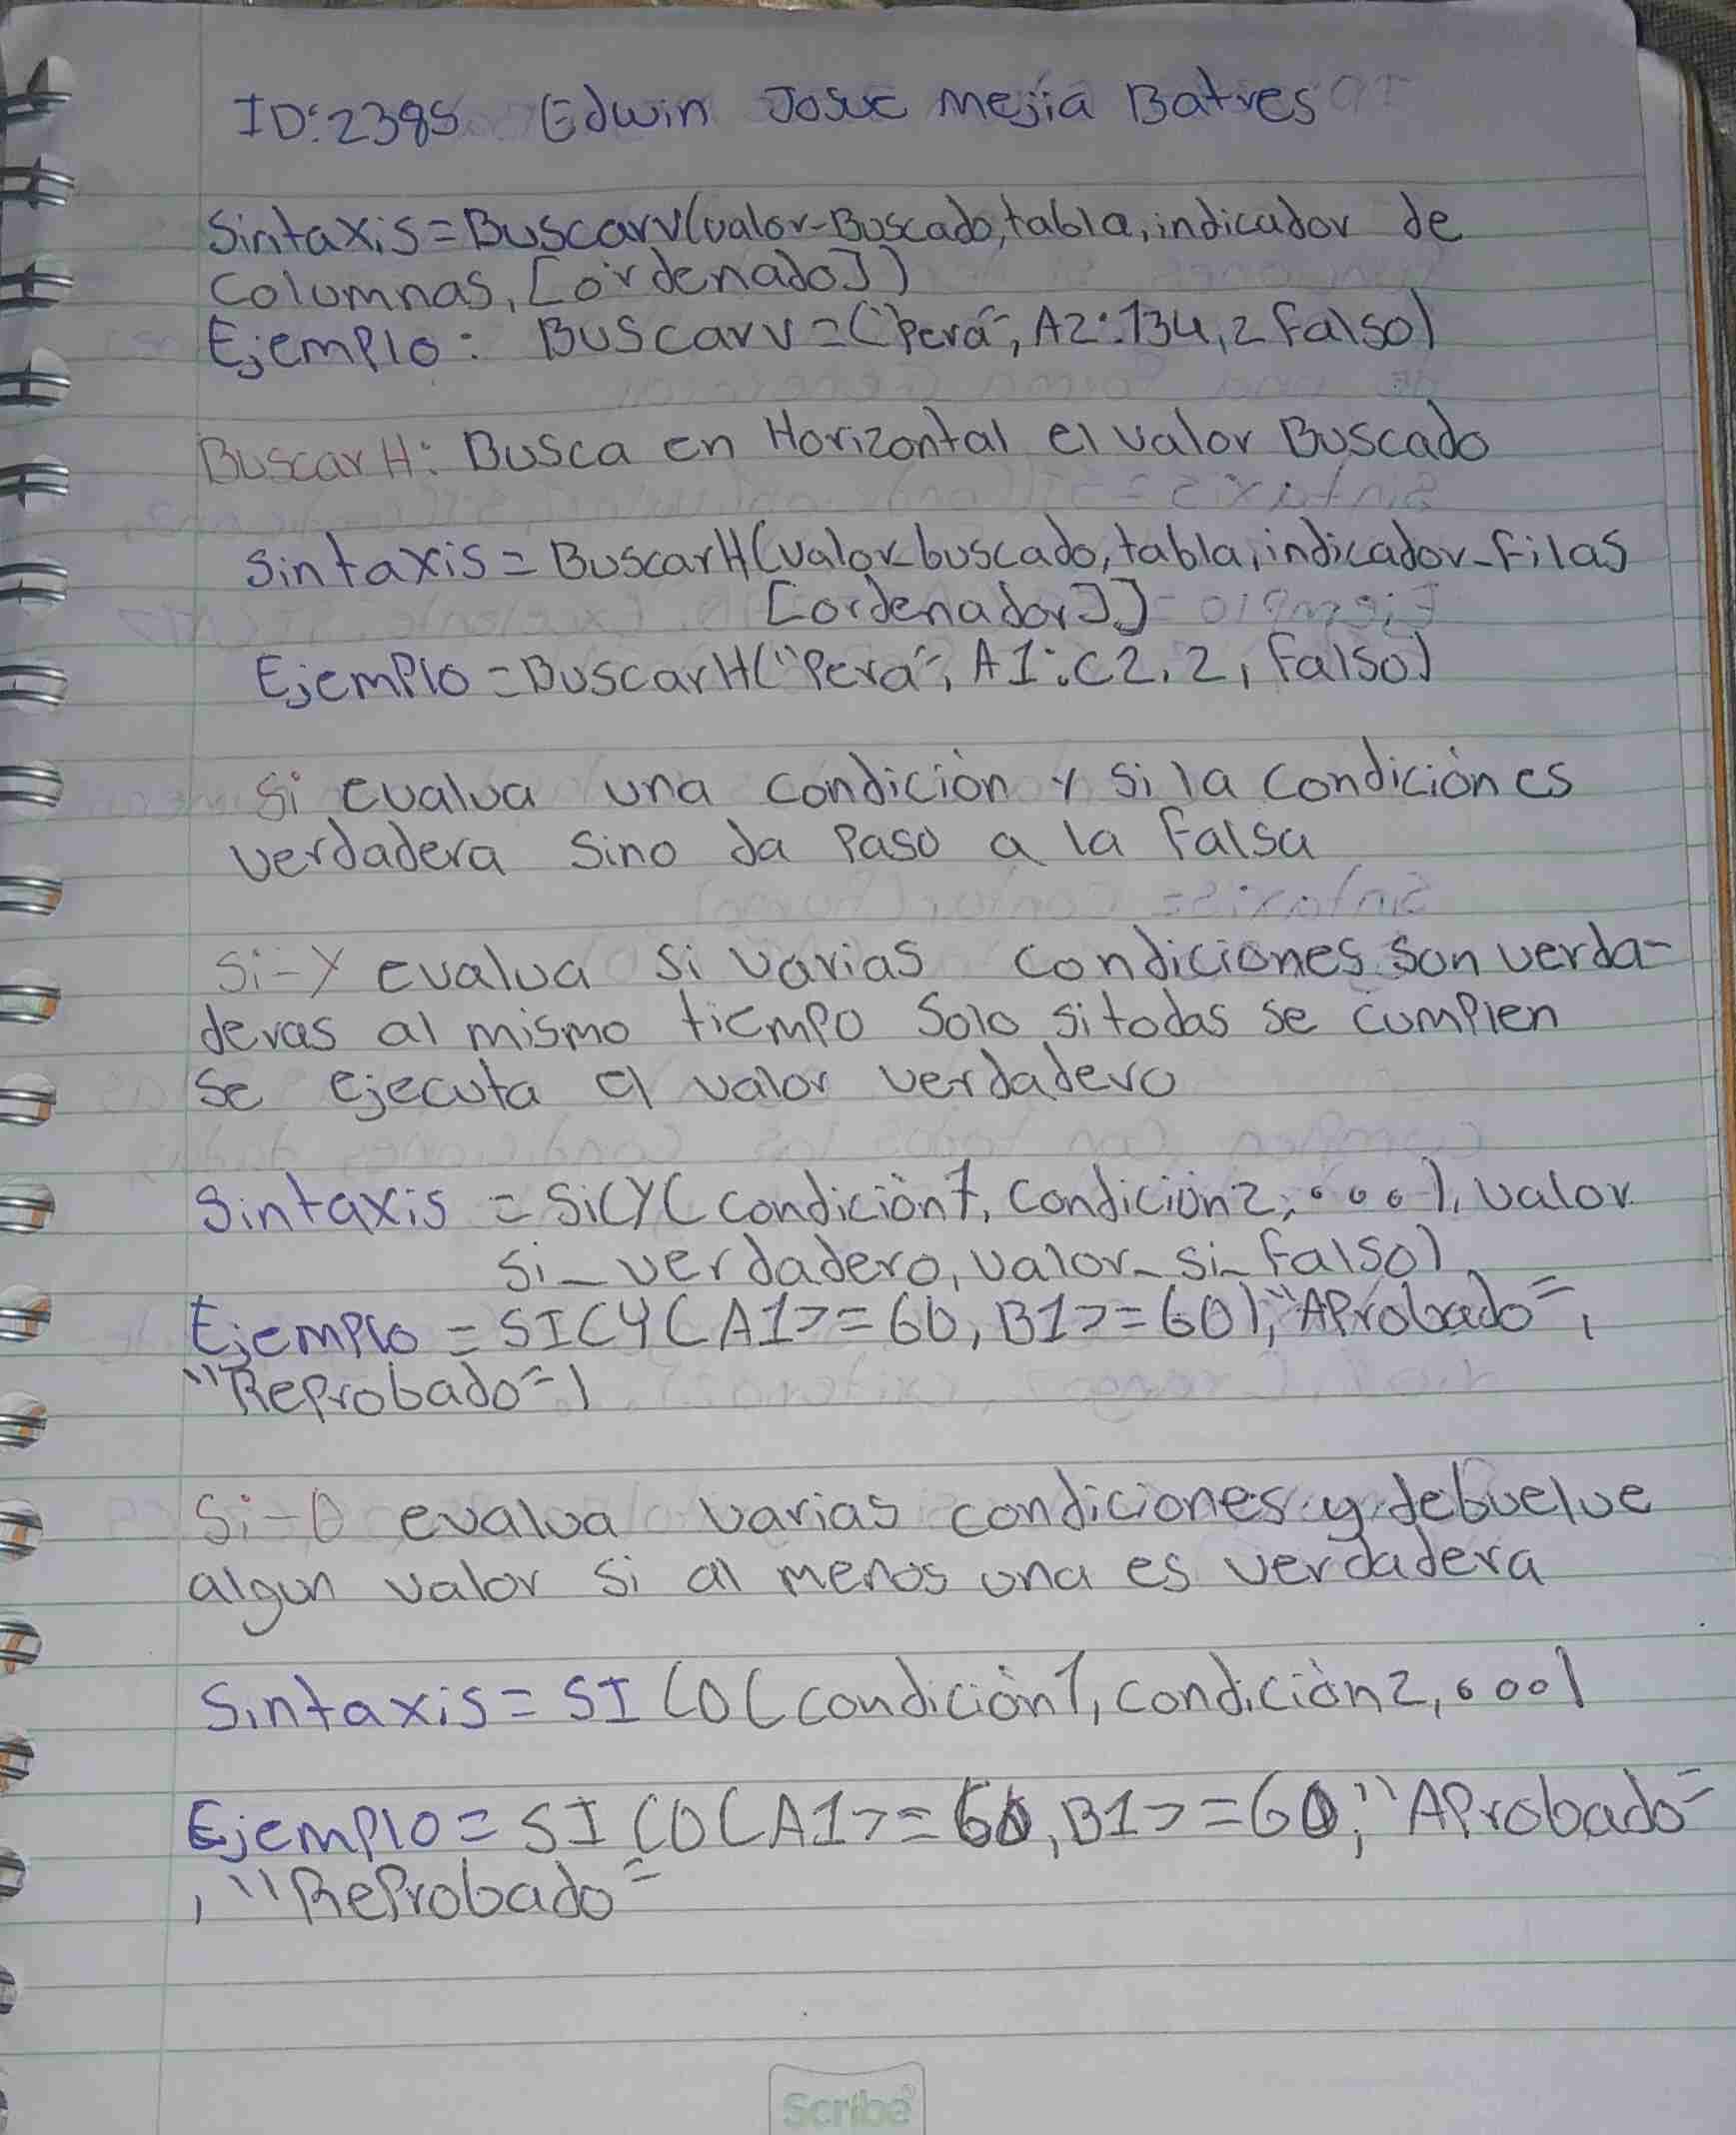 ID:2385 Edwin Josue mejia Batres
Sintaxis=Buscarv(valor-Buscado,tabla,indicador de
Columnas,[ordenado])
Ejemplo: Buscarv=("Pera", A2:134,2 Falso)
BuscarH: Busca en Horizontal el valor Buscado
Sintaxis=BuscarH(valor-buscado,tabla,indicador-filas
[ordenador]]
Ejemplo=BuscarH("Pera", A1:C2,2,Falso)
Si evalua una condición y si la condición es
verdadera sino da Paso a la Falsa
Si-Y evalua si varias condiciones son verda-
deras al mismo tiempo Solo si todas se cumplen
se ejecuta el valor verdadero
Sintaxis =Si(Y(condición1,condición2,...),valor
si_verdadero,valor_si_falso)
Ejemplo=SI(Y(A1>=60,B1>=60),"Aprobado",
"Reprobado")
Si-O evalua varias condiciones y debuelve
algun valor si al menos una es verdadera
Sintaxis=SI(O(condición1,condición2,...)
Ejemplo=SI(O(A1>=60,B1>=60,"Aprobado"
,"Reprobado"
Scribe